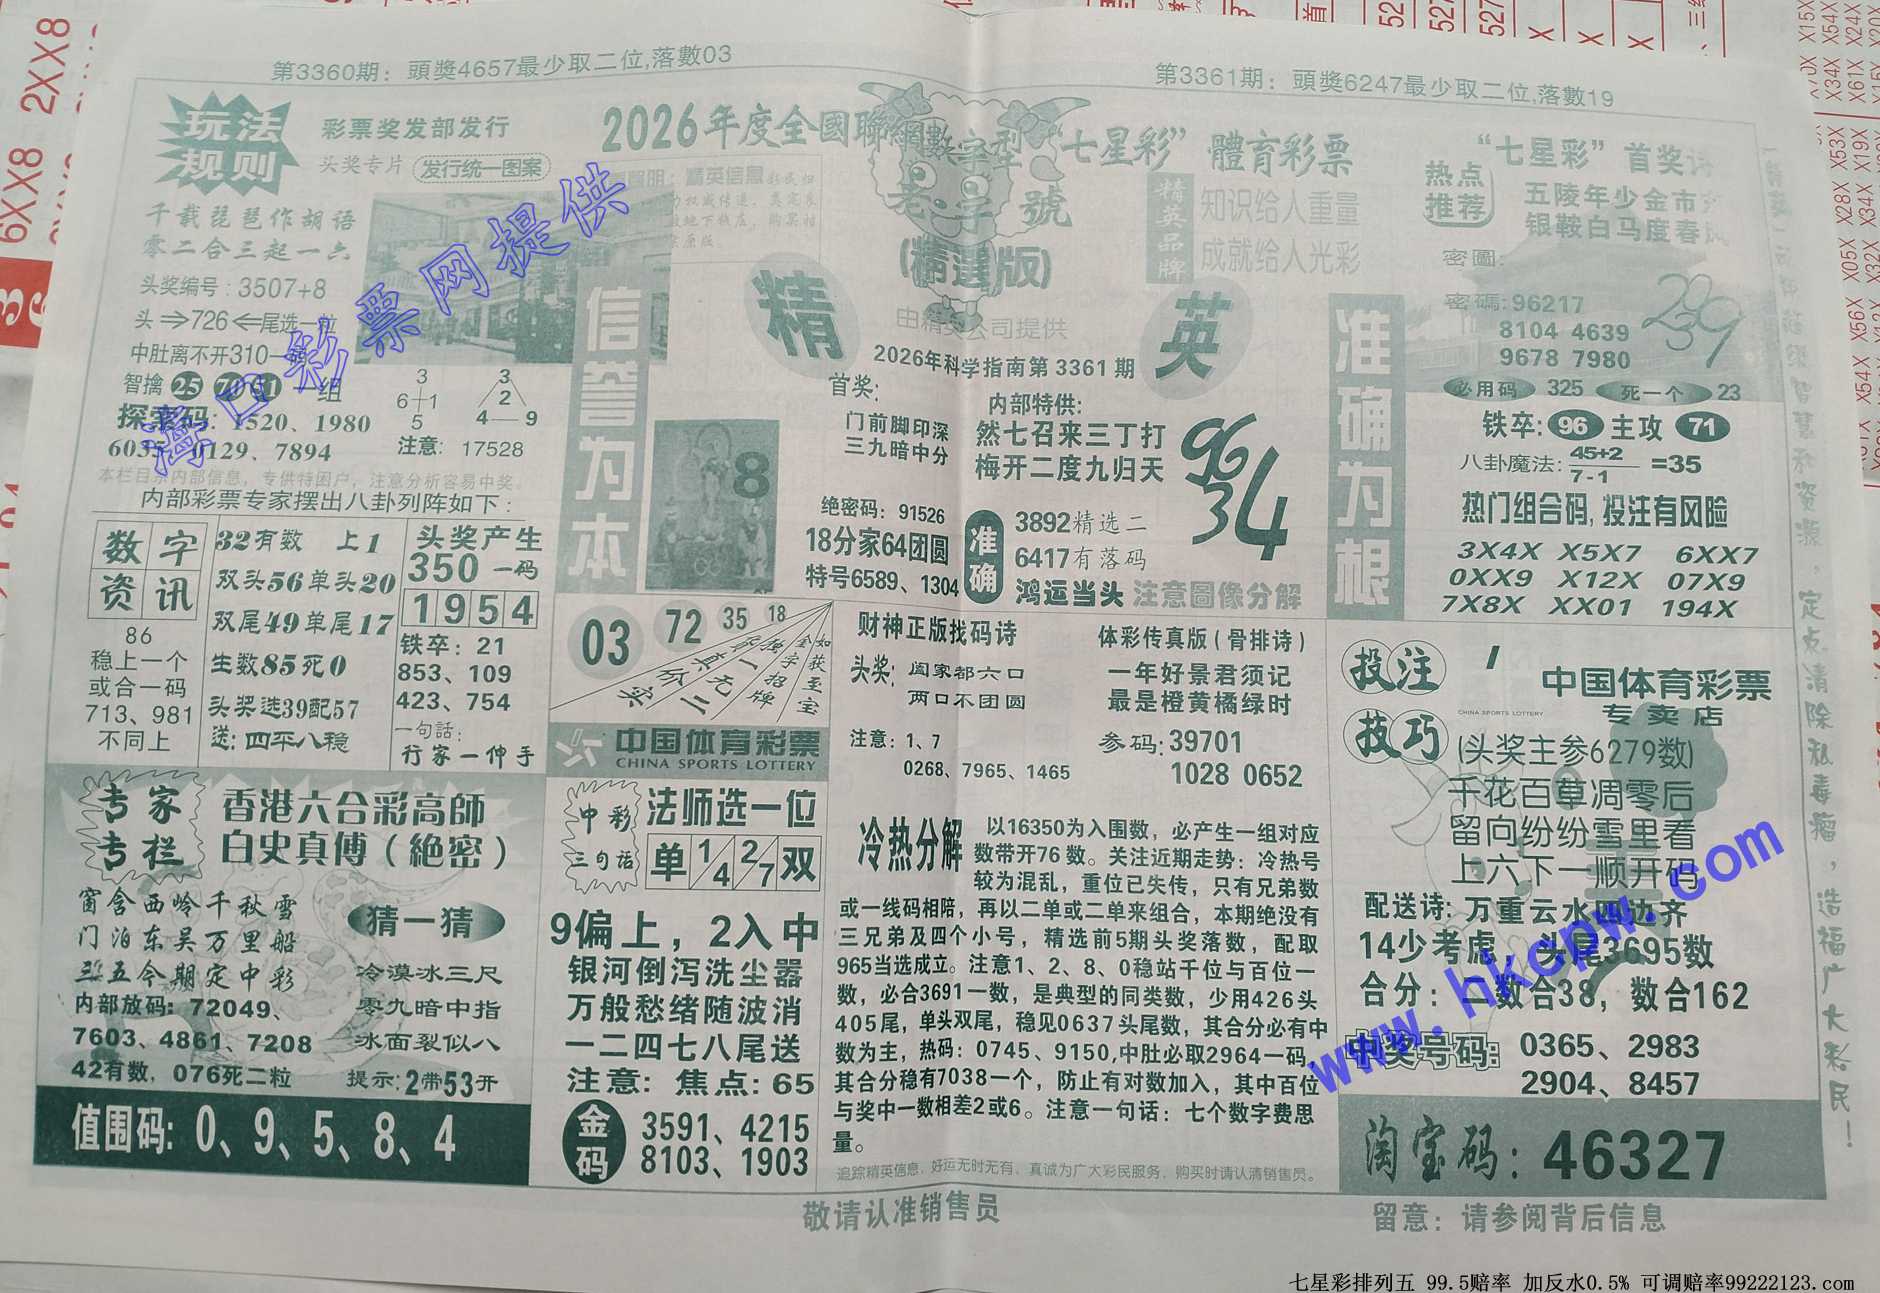 第3360期：頭獎4657最少取二位,落數03
第3361期：頭獎6247最少取二位,落數19
玩法
规则
彩票奖发部发行
头奖专片 发行统一图案
2026年度全國聯網數字型“七星彩”體育彩票
老字號
(精選版)
由精英公司提供
精英品牌
知识给人重量
成就给人光彩
“七星彩”首奖诗
热点
推荐
五陵年少金市
银鞍白马度春风
千载琵琶作胡语
零二合三起一六
头奖编号：3507+8
头⇒726⇐尾选一粒
中肚离不开310一码
智擒 25 70 51 一组
探索码：1520、1980
6035、0129、7894
3
6+1
5
3
2
4—9
注意：17528
本栏目系内部信息，专供特困户，注意分析容易中奖。
内部彩票专家摆出八卦列阵如下：
信誉为本
精
英
2026年科学指南第3361期
首奖:
门前脚印深
三九暗中分
内部特供:
然七召来三丁打
梅开二度九归天
96
34
8
绝密码：91526
18分家64团圆
特号6589、1304
准确
3892精选二
6417有落码
鸿运当头 注意圖像分解
准确为根
密圖:
密碼:96217
8104 4639
9678 7980
239
必用码 325 死一个 23
铁卒: 96 主攻 71
八卦魔法: 45+2
7-1
=35
热门组合码,投注有风险
3X4X X5X7 6XX7
0XX9 X12X 07X9
7X8X XX01 194X
数字
资讯
86
稳上一个
或合一码
713、981
不同上
32有数 上1
双头56单头20
双尾49单尾17
生数85死0
头奖选39配57
送: 四平八稳
头奖产生
350一码
1954
铁卒：21
853、109
423、754
一句話：
行家一伸手
03 72 35 18
如获至宝
金字招牌
独一无二
货真价实
中国体育彩票
CHINA SPORTS LOTTERY
财神正版找码诗
头奖: 阖家都六口
两口不团圆
注意：1、7
0268、7965、1465
体彩传真版(骨排诗)
一年好景君须记
最是橙黄橘绿时
参码:39701
1028 0652
投注
技巧
中国体育彩票
CHINA SPORTS LOTTERY
专卖店
(头奖主参6279数)
千花百草凋零后
留向纷纷雪里看
上六下一顺开码
配送诗: 万重云水四边齐
14少考虑，头尾3695数
合分：二数合38，数合162
中奖号码: 0365、2983
2904、8457
淘宝码：46327
专家
专栏
香港六合彩高師
白史真傅(絶密)
窗含西岭千秋雪
门泊东吴万里船
三五今期定中彩
内部放码：72049、
7603、4861、7208
42有数，076死二粒
猜一猜
冷漠冰三尺
零九暗中指
冰面裂似八
提示:2带53开
值围码: 0、9、5、8、4
中彩
三句话
法师选一位
单 1/4 2/7 双
9偏上，2入中
银河倒泻洗尘器
万般愁绪随波消
一二四七八尾送
注意：焦点：65
金码
3591、4215
8103、1903
冷热分解
以16350为入围数，必产生一组对应
数带开76数。关注近期走势：冷热号
较为混乱，重位已失传，只有兄弟数
或一线码相陪，再以二单或二单来组合，本期绝没有
三兄弟及四个小号，精选前5期头奖落数，配取
965当选成立。注意1、2、8、0稳站千位与百位一
数，必合3691一数，是典型的同类数，少用426头
405尾，单头双尾，稳见0637头尾数，其合分必有中
数为主，热码：0745、9150,中肚必取2964一码，
其合分稳有7038一个，防止有对数加入，其中百位
与奖中一数相差2或6。注意一句话：七个数字费思
量。
追踪精英信息，好运无时无有、真诚为广大彩民服务，购买时请认清销售员。
敬请认准销售员
留意：请参阅背后信息
定点清除私毒瘤，造福广大彩民！
海口彩票网提供
www.hkcpw.com
七星彩排列五 99.5赔率 加反水0.5% 可调赔率99222123.com